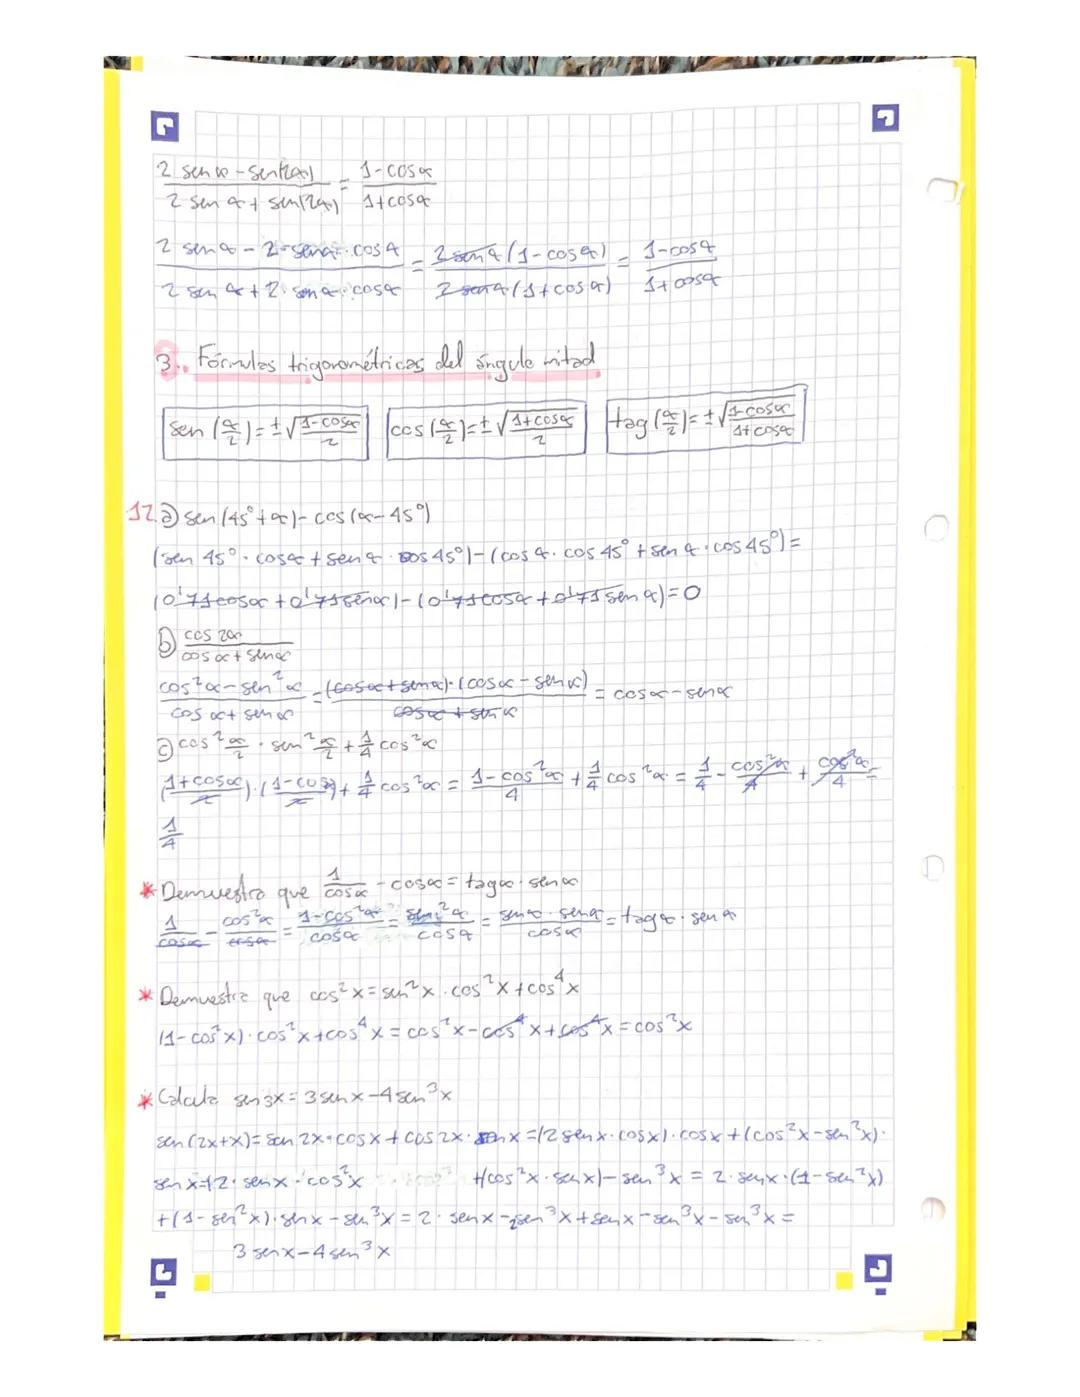 2 sen α - sen(2α) / 2 sen α + sen(2α) = 1-cosα / 1+cosα
2 sen α - 2·senα·cosα / 2 sen α + 2·senα·cosα = 2 senα(1-cosα) / 2 senα(1+cosα) = 1-cosα / 1+cosα
3. Fórmulas trigonométricas del ángulo mitad
sen (α/2) = ±√(1-cosα / 2) cos (α/2) = ±√(1+cosα / 2) tag (α/2) = ±√(1-cosα / 1+cosα)
12. a) sen (45°+α) - cos (α-45°)
(sen 45°·cosα + sen α·cos 45°) - (cos α·cos 45° + sen α·cos 45°) =
(0'71cosα + 0'71senα) - (0'71cosα + 0'71senα) = 0
b) cos 2α / cosα + senα
cos²α - sen²α / cosα + senα = (cosα + senα)·(cosα - senα) / cosα + senα = cosα - senα
c) cos² α/2 · sen² α/2 + 1/4 cos²α
(1+cosα / 2)·(1-cosα / 2) + 1/4 cos²α = 1-cos²α / 4 + 1/4 cos²α = 1/4 - cos²α / 4 + cos²α / 4 =
1/4
* Demuestra que 1/cosα - cosα = tagα·senα
1/cosα - cos²α/cosα = 1-cos²α / cosα = sen²α / cosα = senα·senα / cosα = tagα·senα
* Demuestra que cos²x = sen²x·cos²x + cos⁴x
(1-cos²x)·cos²x + cos⁴x = cos²x - cos⁴x + cos⁴x = cos²x
* Calcula sen3x = 3senx - 4sen³x
sen(2x+x) = sen 2x·cosx + cos2x·senx = (2senx·cosx)·cosx + (cos²x - sen²x)·
senx = (2·senx·cos²x +(cos²x·senx) - sen³x = 2·senx·(1-sen²x)
+(1-sen²x)·senx - sen³x = 2·senx - 2sen³x + senx - sen³x - sen³x =
3senx - 4sen³x